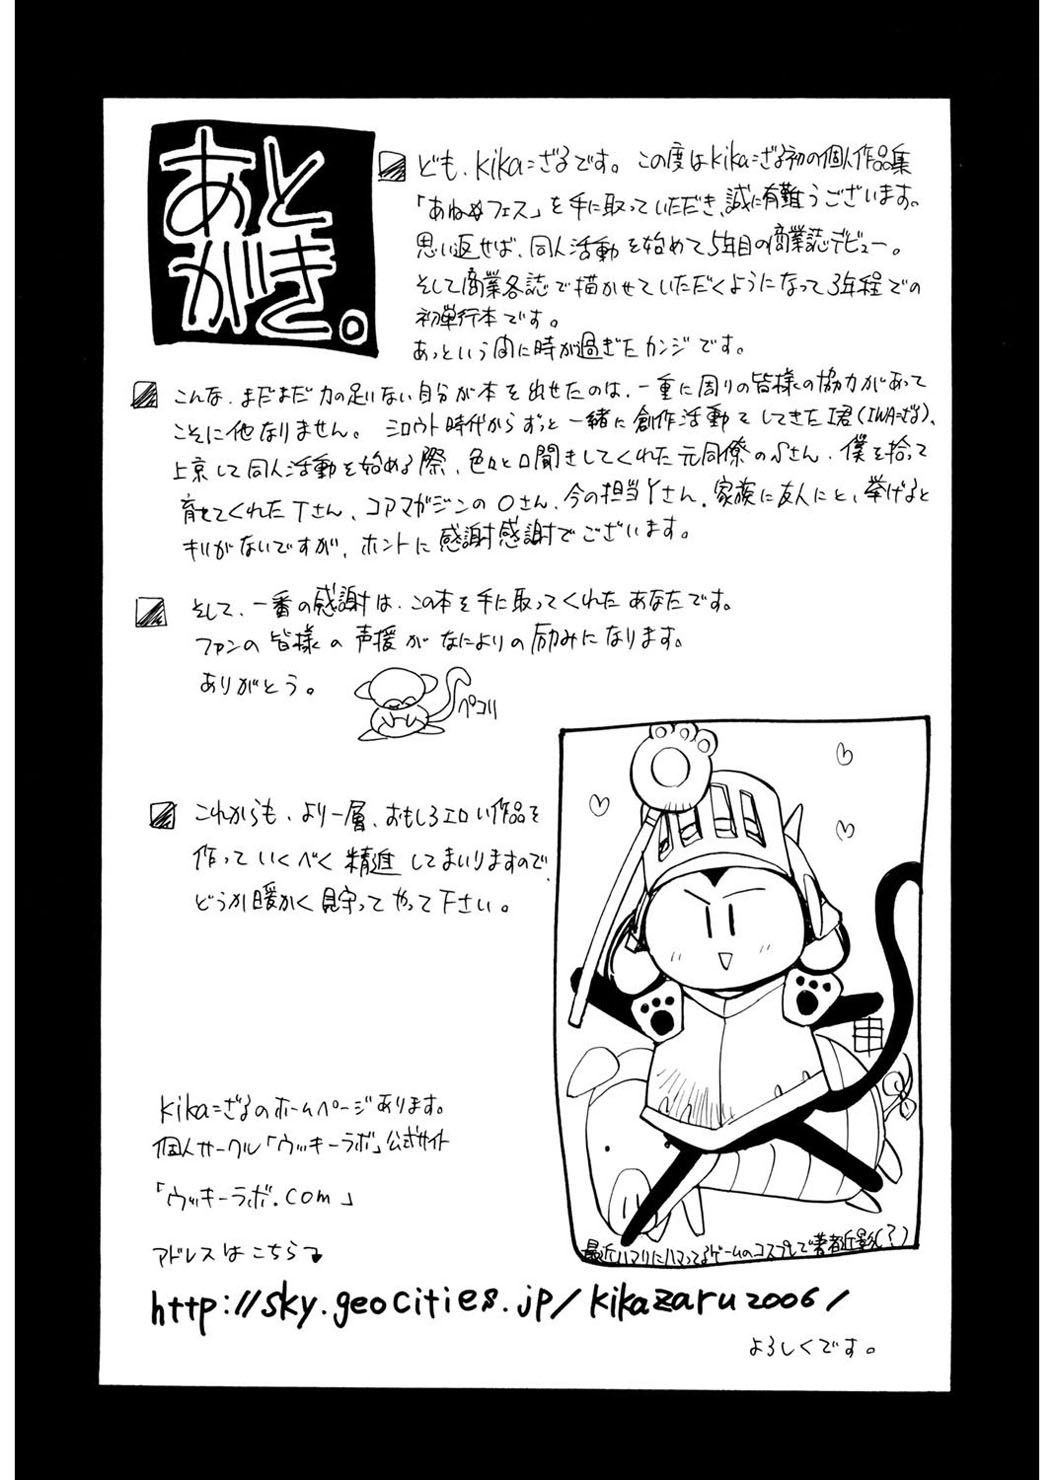 あと
がき。
ども、kika=ざるです。この度はkika=ざる初の個人作品集
「あねぬフェス」を手に取っていただき、誠に有難うございます。
思い返せば、同人活動を始めて5年目の商業誌デビュー。
そして商業各誌で描かせていただくようになって3年程での
初単行本です。
あっという間に時が過ぎたカンジです。
こんな、まだまだ力の足りない自分が本を出せたのは、一重に周りの皆様の協力があって
こそに他なりません。シロウト時代からずっと一緒に創作活動をしてきたI君(IWA=ざる)、
上京して同人活動を始める際、色々と口聞きしてくれた元同僚のSさん、僕を拾って
育ててくれたTさん、コアマガジンのOさん、今の担当Yさん、家族に友人にと、挙げると
キリがないですが、ホントに感謝感謝でございます。
そして、一番の感謝は、この本を手に取ってくれたあなたです。
ファンの皆様の声援がなによりの励みになります。
ありがとう。
ペコリ
これからも、より一層、おもしろエロい作品を
作っていくべく精進してまいりますので、
どうか暖かく見守ってやって下さい。
kika=ざるのホームページあります。
個人サークル「ウッキーラボ」公式サイト
「ウッキーラボ.com」
アドレスはこちら
http://sky.geocities.jp/kikazaru2006/
よろしくです。
最近ハマりにハマってるゲームのコスプレで著者近影(?)